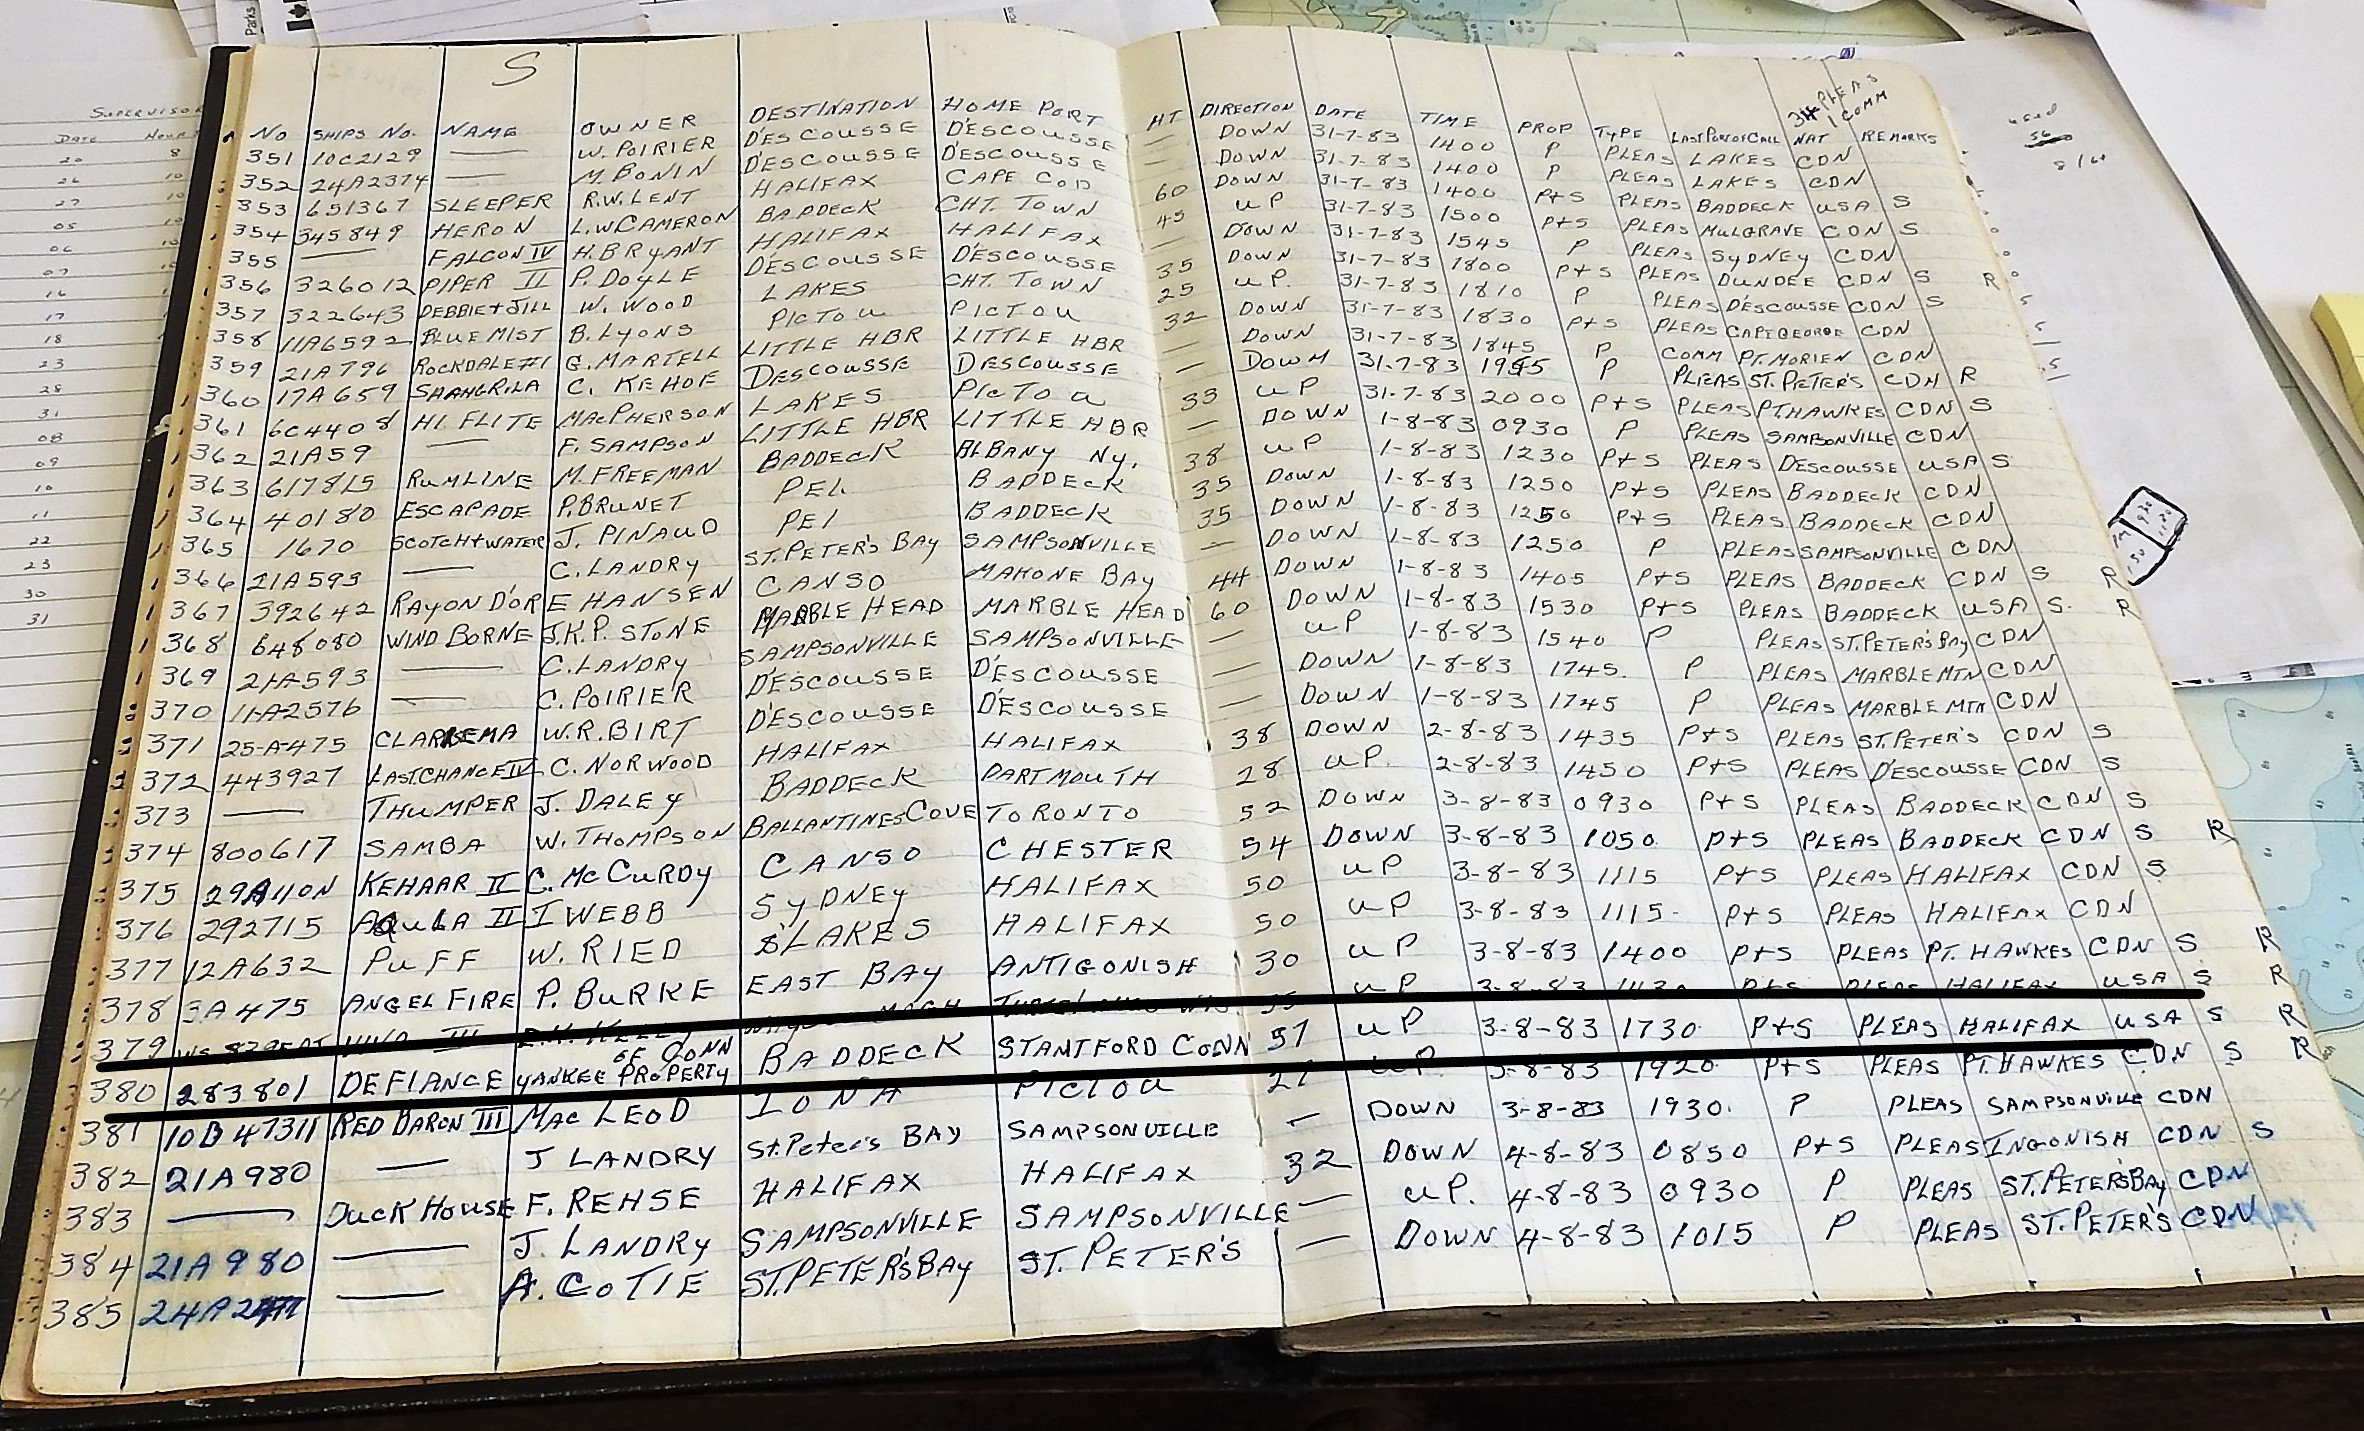 S
34 PLEAS
1 COMM
NO SHIPS NO. NAME OWNER DESTINATION HOME PORT HT DIRECTION DATE TIME PROP TYPE LAST PORT OF CALL NAT REMARKS
351 10C2129 — W. POIRIER D'ESCOUSSE D'ESCOUSSE — DOWN 31-7-83 1400 P PLEAS LAKES CDN
352 24A2374 — M. BONIN D'ESCOUSSE D'ESCOUSSE — DOWN 31-7-83 1400 P PLEAS LAKES CDN
353 651367 SLEEPER R.W. LENT HALIFAX CAPE COD 60 DOWN 31-7-83 1400 P+S PLEAS BADDECK USA S
354 345849 HERON L.W CAMERON BADDECK CHT. TOWN 45 UP 31-7-83 1500 P+S PLEAS MULGRAVE CDN S
355 — FALCON IV H. BRYANT HALIFAX HALIFAX — DOWN 31-7-83 1545 P PLEAS SYDNEY CDN
356 326012 PIPER II P. DOYLE DESCOUSSE D'ESCOUSSE 35 DOWN 31-7-83 1800 P+S PLEAS DUNDEE CDN S R
357 322643 DEBBIE+JILL W. WOOD LAKES CHT. TOWN 25 UP. 31-7-83 1810 P PLEAS D'ESCOUSSE CDN S
358 11A6592 BLUE MIST B. LYONS PICTOU PICTOU 32 DOWN 31-7-83 1830 P+S PLEAS CAPE GEORGE CDN
359 21A796 ROCKDALE #1 G. MARTELL LITTLE HBR LITTLE HBR — DOWN 31-7-83 1845 P COMM PT. MORIEN CDN
360 17A659 SHANGRILA C. KEHOE DESCOUSSE DESCOUSSE — DOWN 31-7-83 P PLEAS ST. PETER'S CDN R
361 6C4408 HI. FLITE MACPHERSON LAKES PICTOU 33 UP 31-7-83 2000 P+S PLEAS PT HAWKES CDN S
362 21A59 — F. SAMPSON LITTLE HBR LITTLE HBR — DOWN 1-8-83 0930 P PLEAS SAMPSONVILLE CDN
363 617815 RUMLINE M. FREEMAN BADDECK ALBANY NY. 38 UP 1-8-83 1230 P+S PLEAS DESCOUSSE USA S
364 40180 ESCAPADE P. BRUNET PEI. BADDECK 35 DOWN 1-8-83 1250 P+S PLEAS BADDECK CDN
365 1670 SCOTCH+WATER J. PINAUD PEI BADDECK 35 DOWN 1-8-83 1250 P+S PLEAS BADDECK CDN
366 21A593 — C. LANDRY ST. PETER'S BAY SAMPSONVILLE — DOWN 1-8-83 1250 P PLEAS SAMPSONVILLE CDN
367 392642 RAYON D'OR E HANSEN CANSO MAHONE BAY 44 DOWN 1-8-83 1405 P+S PLEAS BADDECK CDN S R
368 648080 WIND BORNE J.K.P. STONE MARBLE HEAD MARBLE HEAD 60 DOWN 1-8-83 1530 P+S PLEAS BADDECK USA S. R
369 21A-593 — C. LANDRY SAMPSONVILLE SAMPSONVILLE — UP 1-8-83 1540 P PLEAS ST. PETER'S BAY CDN
370 11-A-2576 — C. POIRIER D'ESCOUSSE D'ESCOUSSE — DOWN 1-8-83 1745. P PLEAS MARBLE MTN CDN
371 25-A-475 W.R. BIRT D'ESCOUSSE D'ESCOUSSE — DOWN 1-8-83 1745 P PLEAS MARBLE MTN CDN
372 443927 LAST CHANCE IV C. NORWOOD HALIFAX HALIFAX 38 DOWN 2-8-83 1435 P+S PLEAS ST. PETER'S CDN S
373 — THUMPER J. DALEY BADDECK DARTMOUTH 28 UP. 2-8-83 1450 P+S PLEAS D'ESCOUSSE CDN S
374 800617 SAMBA W. THOMPSON BALLANTINES COVE TORONTO 52 DOWN 3-8-83 0930 P+S PLEAS BADDECK CDN S
375 29A110N KEHAAR II C. MC CURDY CANSO CHESTER 54 DOWN 3-8-83 1050 P+S PLEAS BADDECK CDN S R
376 292715 AQUILA II I WEBB SYDNEY HALIFAX 50 UP 3-8-83 1115 P+S PLEAS HALIFAX CDN S
377 12A632 PUFF W. RIED LAKES HALIFAX 50 UP 3-8-83 1115- P+S PLEAS HALIFAX CDN
378 3A475 ANGEL FIRE P. BURKE EAST BAY ANTIGONISH 30 UP 3-8-83 1400 P+S PLEAS PT. HAWKES CDN S R
379 III KELLEY 35 UP 3-8-83 1430 P+S PLEAS HALIFAX USA S R
380 283801 DEFIANCE YANKEE PROPERTY OF CONN BADDECK STAMTFORD CONN 57 UP 3-8-83 1730 P+S PLEAS HALIFAX USA S R
381 10B47311 RED BARON III MAC LEOD IONA PICTOU 27 UP. 3-8-83 1920 P+S PLEAS PT. HAWKES CDN S R
382 21A980 — J LANDRY St. Peter's BAY SAMPSONVILLE — DOWN 3-8-83 1930. P PLEAS SAMPSONVILLE CDN
383 — DUCK HOUSE F. REHSE HALIFAX HALIFAX 32 DOWN 4-8-83 0850 P+S PLEAS INGONISH CDN S
384 21A980 — J. LANDRY SAMPSONVILLE SAMPSONVILLE — UP. 4-8-83 0930 P PLEAS ST. PETERS BAY CDN
385 — A. COTIE ST. PETER'S BAY ST. PETER'S — DOWN 4-8-83 1015 P PLEAS ST. PETER'S CDN
SUPERVISOR
DATE HOURS
20 8
26 10
27 10
05
06
07
16
17
18
23
28
31
08
09
10
11
22
23
30
31
Parks
used